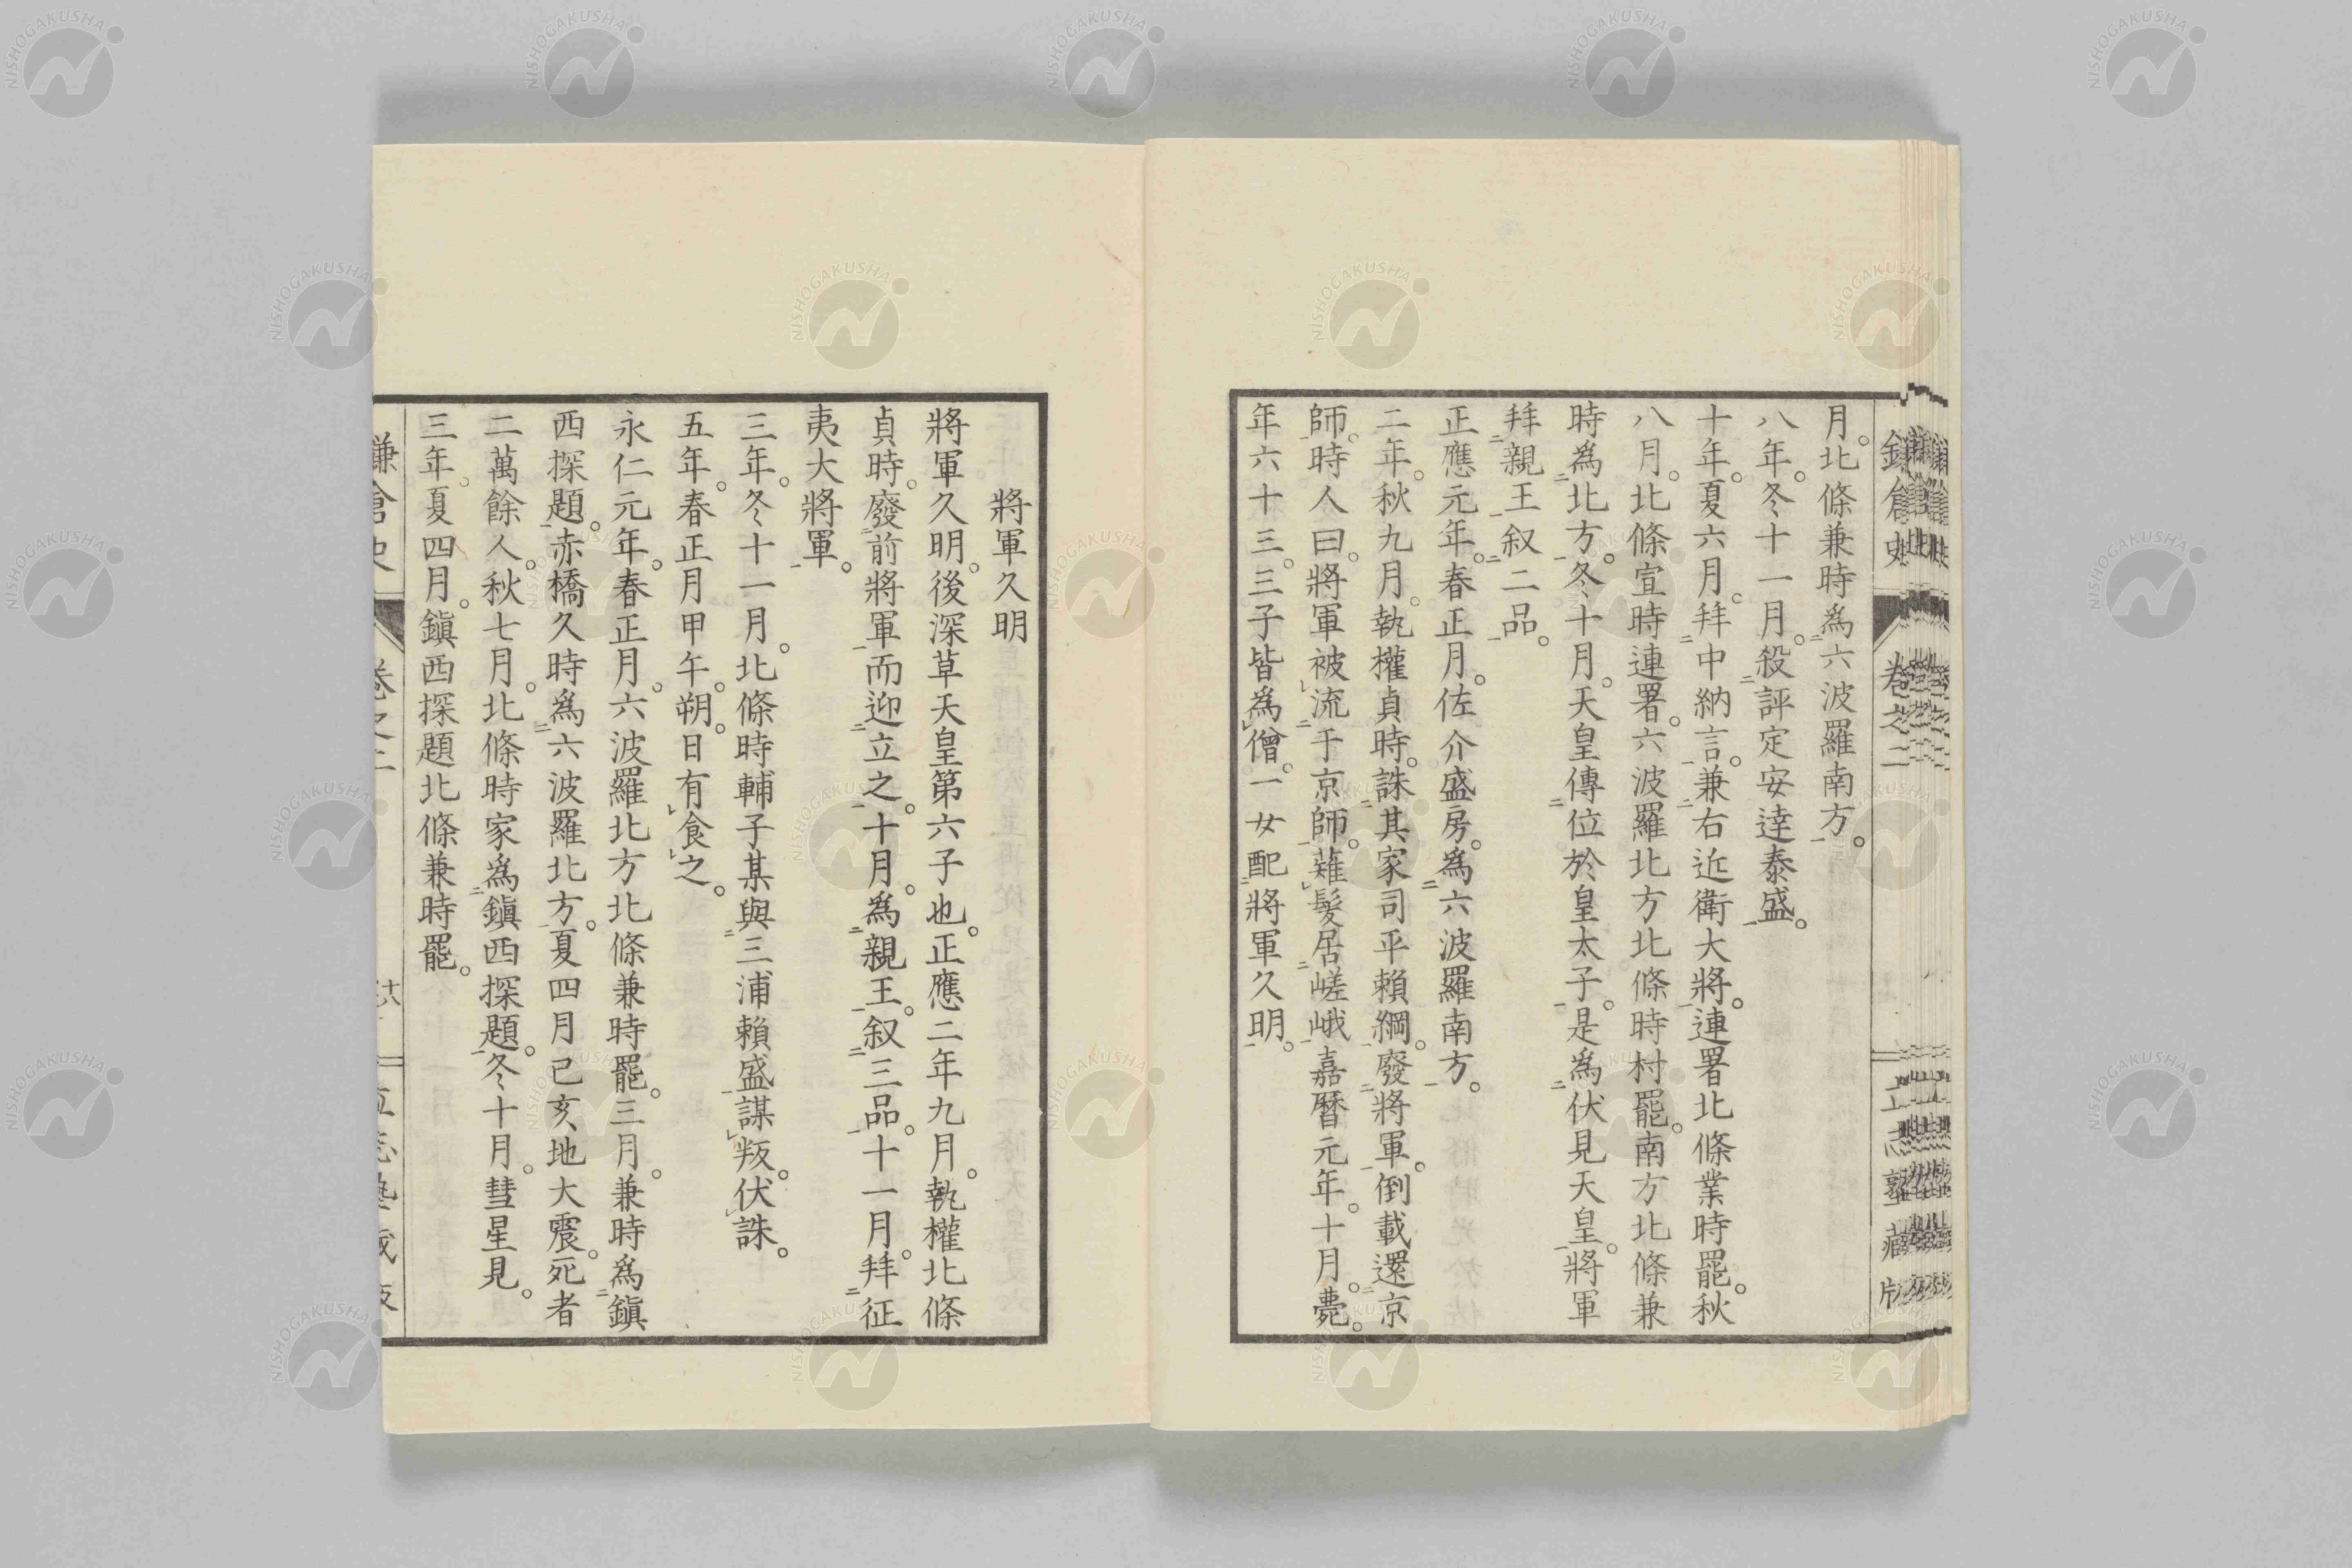 月。北條兼時爲六波羅南方。
八年。冬十一月。殺評定安達泰盛。
十年。夏六月。拜中納言。兼右近衛大將。連署北條業時罷。秋
八月。北條宣時連署。六波羅北方北條時村罷。南方北條兼
時爲北方。冬十月。天皇傳位於皇太子。是爲伏見天皇。將軍
拜親王叙二品。
正應元年。春正月。佐介盛房。爲六波羅南方。
二年。秋九月。執權貞時。誅其家司平賴綱。廢將軍。倒載還京
師。時人曰。將軍被流于京師。薙髮居嵯峨嘉曆元年。十月。薨。
年六十三。三子皆爲僧。一女配將軍久明。
將軍久明
將軍久明。後深草天皇第六子也。正應二年九月。執權北條
貞時。廢前將軍而迎立之。十月。爲親王。叙三品。十一月。拜征
夷大將軍。
三年。冬十一月。北條時輔子某與三浦賴盛謀叛。伏誅。
五年。春正月甲午。朔。日有食之。
永仁元年。春正月。六波羅北方北條兼時罷。三月。兼時爲鎭
西探題。赤橋久時爲六波羅北方。夏四月己亥地大震。死者
二萬餘人。秋七月。北條時家爲鎭西探題。冬十月。彗星見。
三年。夏四月。鎭西探題北條兼時罷。
鎌倉史
卷之二
十六
NISHOGAKUSHA